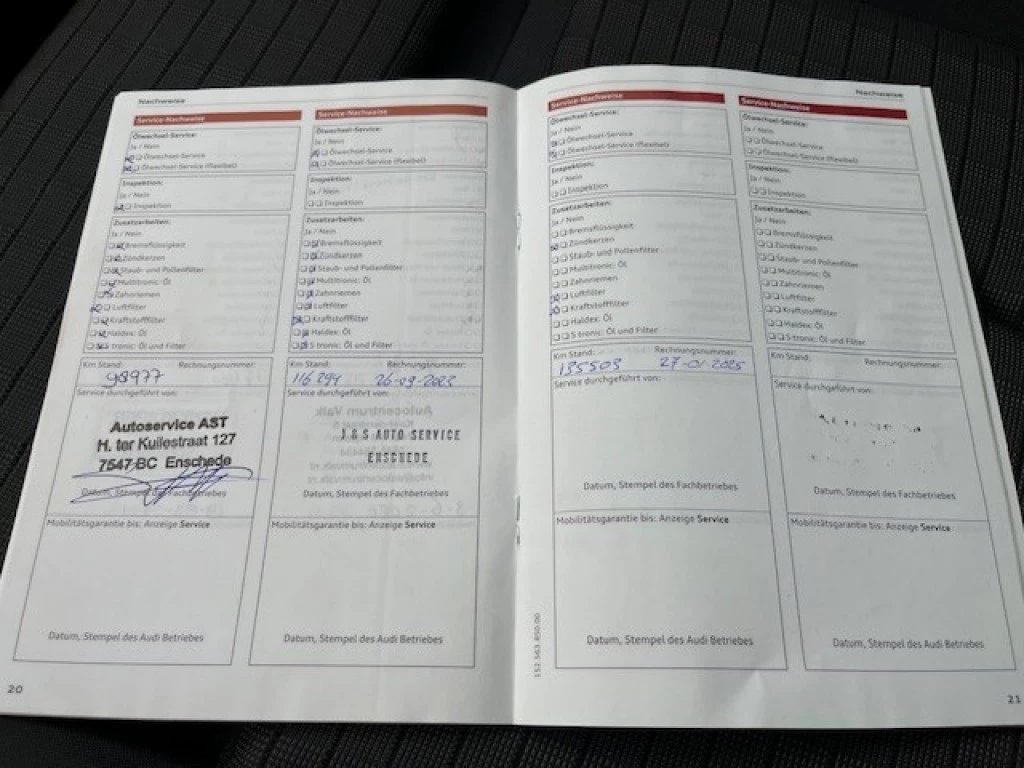 Nachweise
Service-Nachweise
Ölwechsel-Service:
Ja / Nein
Ölwechsel-Service
Ölwechsel-Service (flexibel)
Inspektion:
Ja / Nein
Inspektion
Zusatzarbeiten:
Ja / Nein
Bremsflüssigkeit
Zündkerzen
Staub- und Pollenfilter
Multitronic: Öl
Zahnriemen
Luftfilter
Kraftstofffilter
Haldex: Öl
S tronic: Öl und Filter
Km Stand: Rechnungsnummer:
98977
Service durchgeführt von:
Autoservice AST
H. ter Kuilestraat 127
7547 BC Enschede
Datum, Stempel des Fachbetriebes
Mobilitätsgarantie bis: Anzeige Service
Datum, Stempel des Audi Betriebes
20
Service-Nachweise
Ölwechsel-Service:
Ja / Nein
Ölwechsel-Service
Ölwechsel-Service (flexibel)
Inspektion:
Ja / Nein
Inspektion
Zusatzarbeiten:
Ja / Nein
Bremsflüssigkeit
Zündkerzen
Staub- und Pollenfilter
Multitronic: Öl
Zahnriemen
Luftfilter
Kraftstofffilter
Haldex: Öl
S tronic: Öl und Filter
Km Stand: Rechnungsnummer:
116294 26-09-2023
Service durchgeführt von:
J & S AUTO SERVICE
ENSCHEDE
Datum, Stempel des Fachbetriebes
Mobilitätsgarantie bis: Anzeige Service
Datum, Stempel des Audi Betriebes
Nachweise
Service-Nachweise
Ölwechsel-Service:
Ja / Nein
Ölwechsel-Service
Ölwechsel-Service (flexibel)
Inspektion:
Ja / Nein
Inspektion
Zusatzarbeiten:
Ja / Nein
Bremsflüssigkeit
Zündkerzen
Staub- und Pollenfilter
Multitronic: Öl
Zahnriemen
Luftfilter
Kraftstofffilter
Haldex: Öl
S tronic: Öl und Filter
Km Stand: Rechnungsnummer:
135503 27-01-2025
Service durchgeführt von:
Datum, Stempel des Fachbetriebes
Mobilitätsgarantie bis: Anzeige Service
Datum, Stempel des Audi Betriebes
152.563.8S0.00
Service-Nachweise
Ölwechsel-Service:
Ja / Nein
Ölwechsel-Service
Ölwechsel-Service (flexibel)
Inspektion:
Ja / Nein
Inspektion
Zusatzarbeiten:
Ja / Nein
Bremsflüssigkeit
Zündkerzen
Staub- und Pollenfilter
Multitronic: Öl
Zahnriemen
Luftfilter
Kraftstofffilter
Haldex: Öl
S tronic: Öl und Filter
Km Stand: Rechnungsnummer:
Service durchgeführt von:
Datum, Stempel des Fachbetriebes
Mobilitätsgarantie bis: Anzeige Service
Datum, Stempel des Audi Betriebes
21